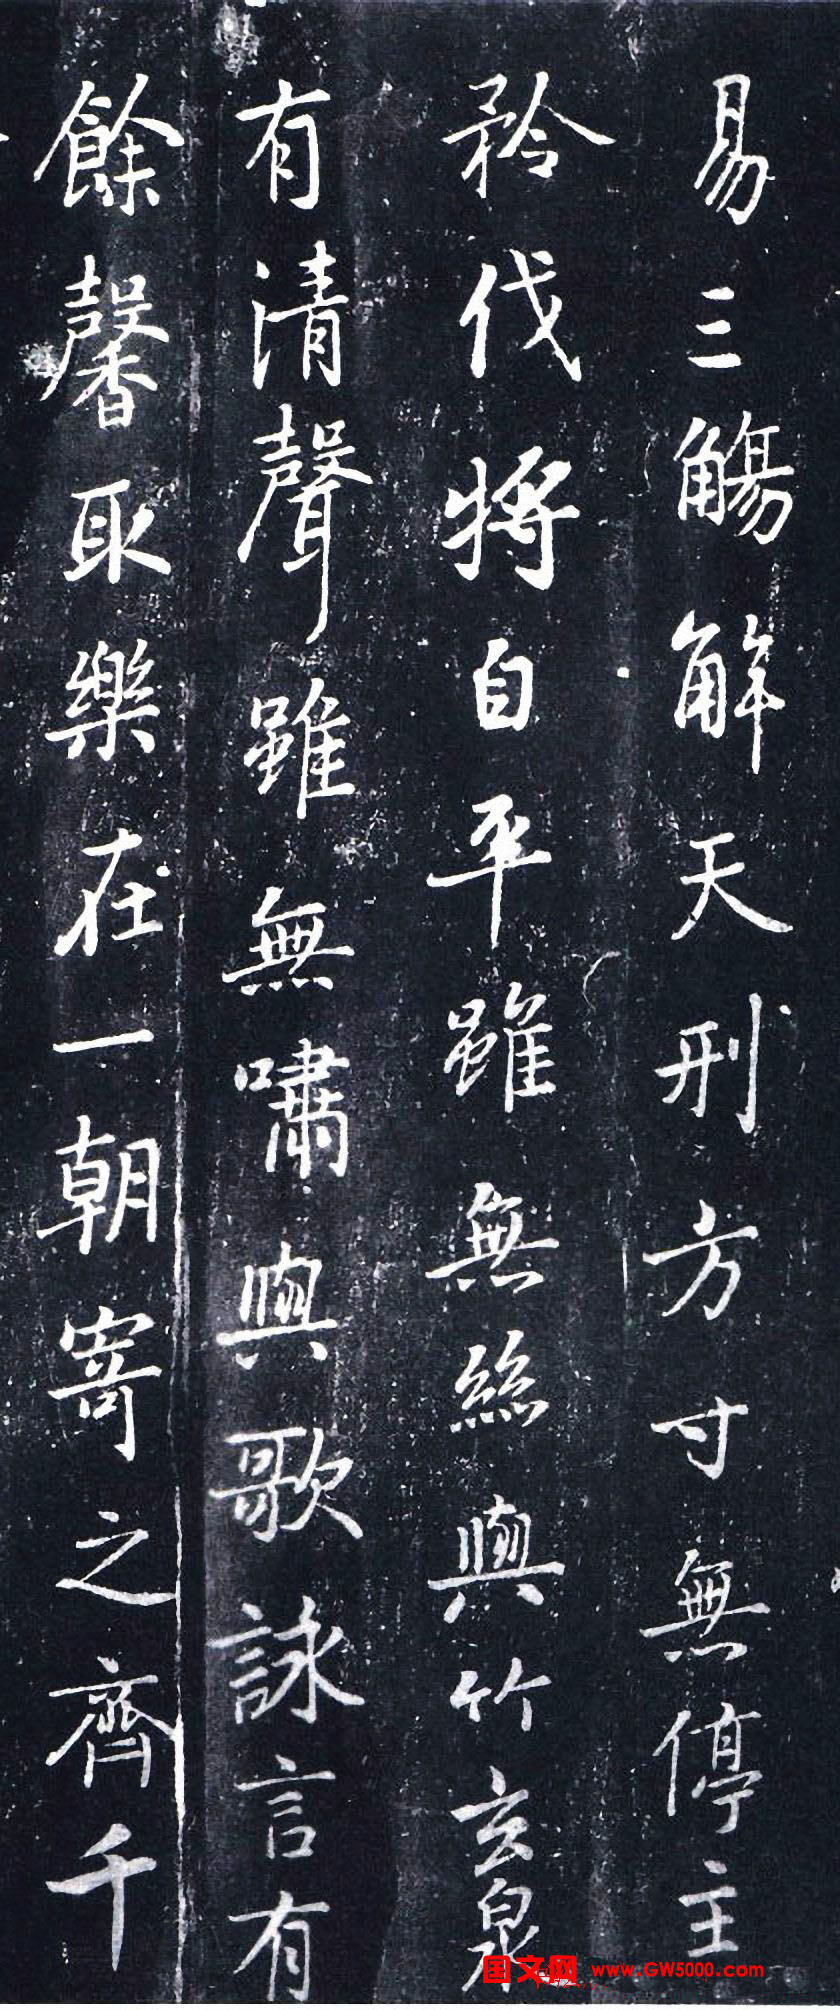 易三觴解天刑方寸無停主
矜伐將自平雖無絲與竹玄泉
有清聲雖無嘯與歌詠言有
餘馨取樂在一朝寄之齊千
国文网 www.GW5000.com